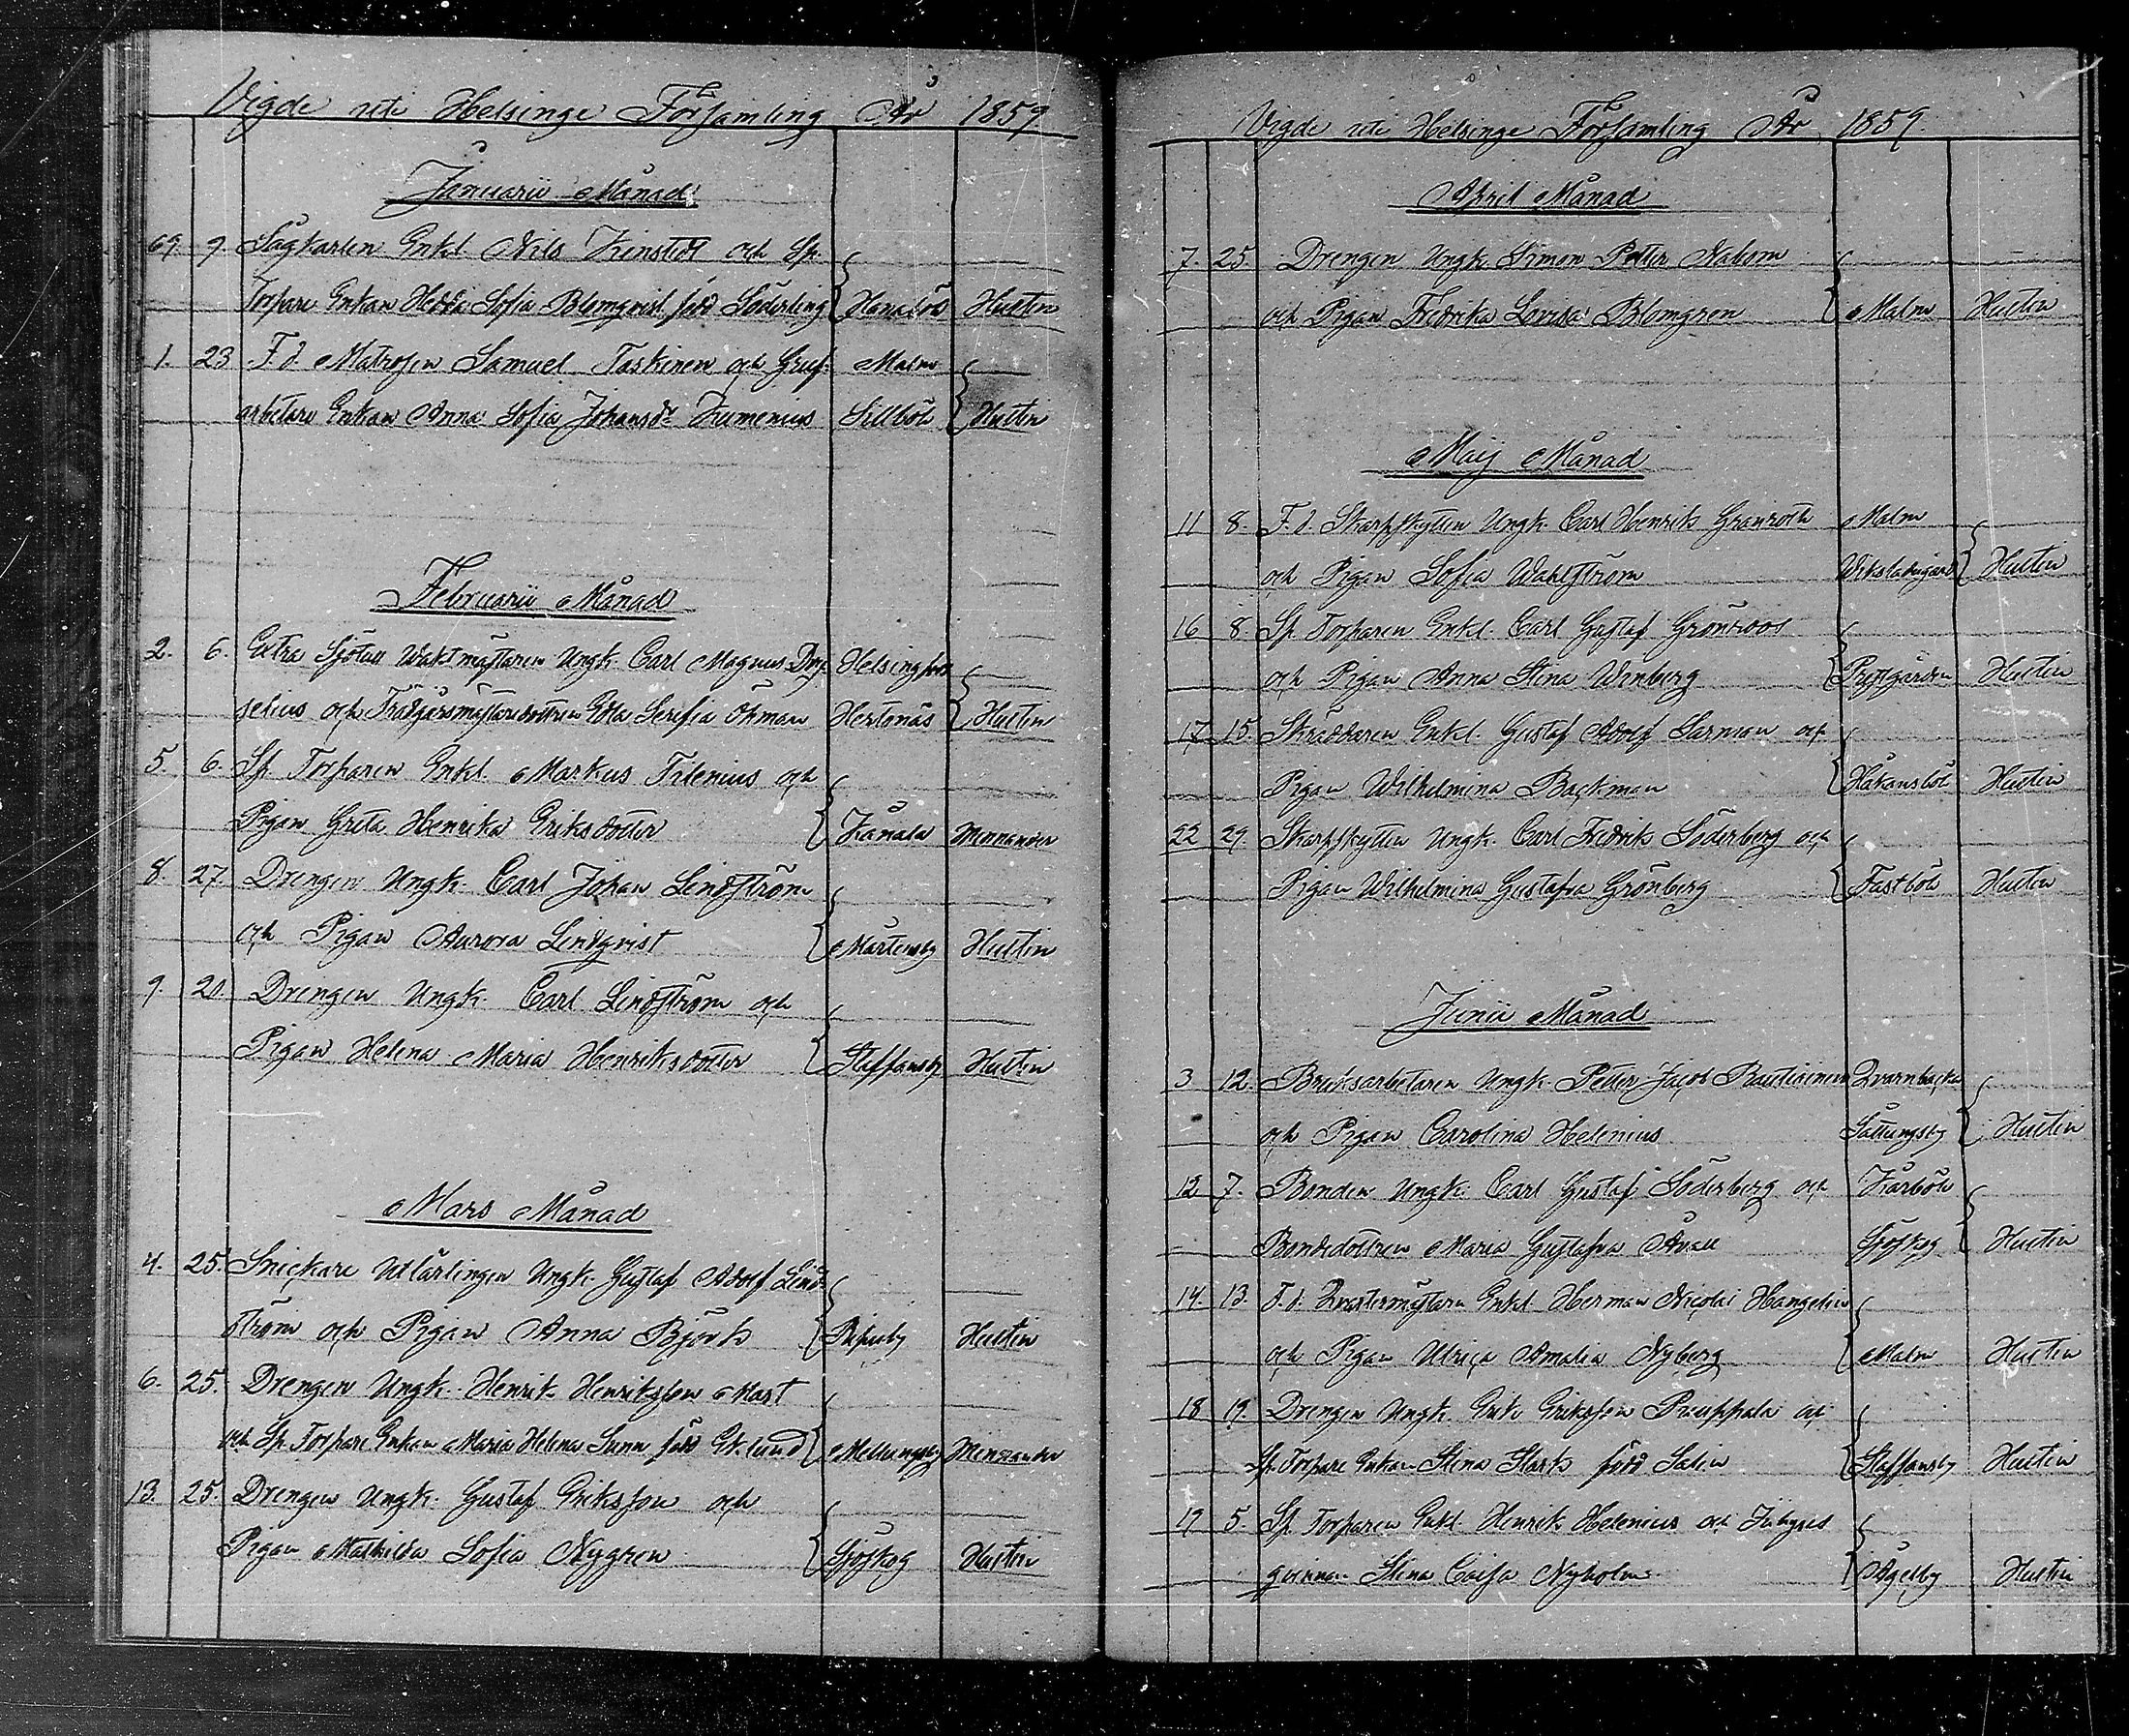 Vigde uti Helsinge Församling År 1859
Januarii Månad
69. 9. Sågkarlen Enkl. Nils Kinstedt och Sp.
Torpare Enkan Hedda Sofia Blomqvist född Söderling Hanaböle Hultin
1. 23 F.d. Matrosen Samuel Taskinen och Gruf- Malm
arbetare Enkan Anna Sofia Johansdr Kumenius Sillböle Hultin
Februarii Månad
2. 6. Extra Sjötull Waktmästaren Ungk. Carl Magnus Helsingfors
selius och Trädgårsmästaredottren Edla Serafia Öhman Hertonäs Hultin
5. 6. Sp. Torparen Enkl. Markus Filenius och
Pigan Greta Henrika Eriksdotter Kånala Monnander
8. 27. Drengen Ungk. Carl Johan Lindström
och Pigan Aurora Lindqvist Mårtensby Hultin
9. 20. Drengen Ungk. Carl Lindström och
Pigan Helena Maria Henriksdotter Staffansby Hultin
Mars Månad
4. 25. Snickare Utlärlingen Ungk. Gustaf Adolf Lind-
ström och Pigan Anna Björk Hultin
6. 25. Drengen Ungk. Henrik Henriksson Mart
och Sp. Torpare Enkan Maria Helena Sunn född Eklund Mellungsby Monnander
13. 25. Drengen Ungk. Gustaf Eriksson och
Pigan Mathilda Sofia Nygren Sjöskog Hultin
Vigde uti Helsinge Församling År 1859.
April Månad
7. 25. Drengen Ungk. Simon Petter Nahom
och Pigan Fredrika Lovisa Blomgren Malm Hultin
Maij Månad
11 8. F.d. Skarpskytten Ungk. Carl Henrik Granroth Malm
och Pigan Sofia Wahlström Hultin
16 8. Sp. Torparen Enkl. Carl Gustaf Grönroos
och Pigan Anna Stina Winberg Prestgården Hultin
17 15. Skräddaren Enkl. Gustaf Adolf Sarman och
Pigan Wilhelmina Backman Håkansböle Hultin
22 29. Skarpskytten Ungk. Carl Fredrik Söderberg och
Pigan Wilhelmina Gustafva Grönberg Fastböle Hultin
Junii Månad
3 12. Bruksarbetaren Ungk. Petter Jacob Rautioinen Qvarnbacka
och Pigan Carolina Helenius Sottungsby Hultin
12 7. Bonden Ungk. Carl Gustaf Söderberg och Kårböle
Bondedottren Maria Gustafva Avall Sjöskog Hultin
14. 13. F.d. Qvartermästaren Enkl. Herman Nicolai Hangelin
och Pigan Ulrica Amalia Nyberg Malm Hultin
18 19. Drengen Ungk. Erik Eriksson Pruppala och
Sp. Torpare Enkan Stina Stark född Salin Staffansby Hultin
19 5. Sp. Torparen Enkl. Henrik Helenius och Inhyses
qvinnan Stina Caisa Nyholm Åggelby Hultin